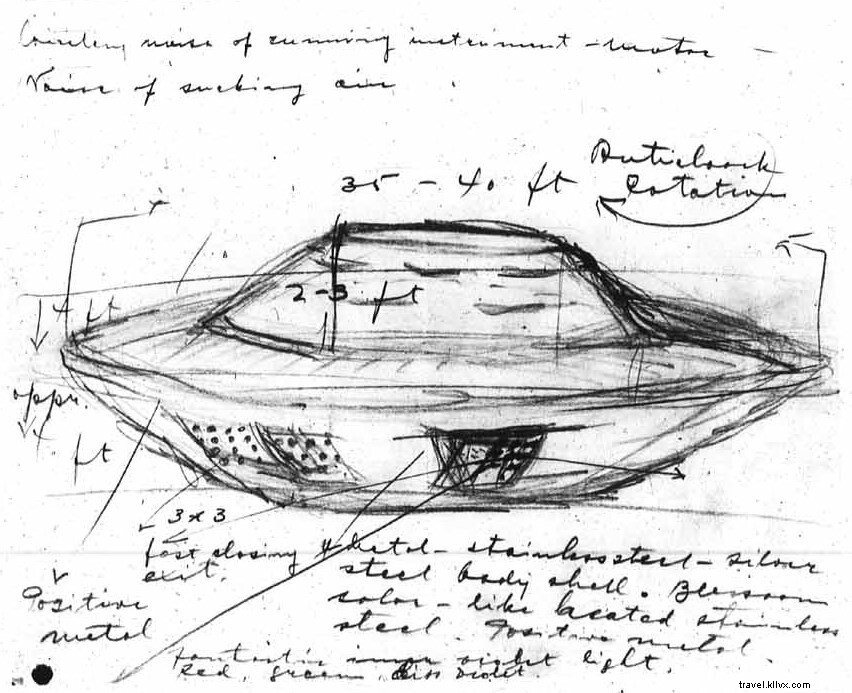 noise of running instrument - motor -
Noise of sucking air
Anticlock
35 - 40 ft
rotation
2-3 ft
4 ft
appr.
4 ft
3x3
fast closing
exit.
Metal - stainless steel - silver
steel body shell.
color - like heated stainless
steel. Positive metal.
Positive
metal
Fantastic inner violet light.
Red, green, violet.
travel.kllvx.com